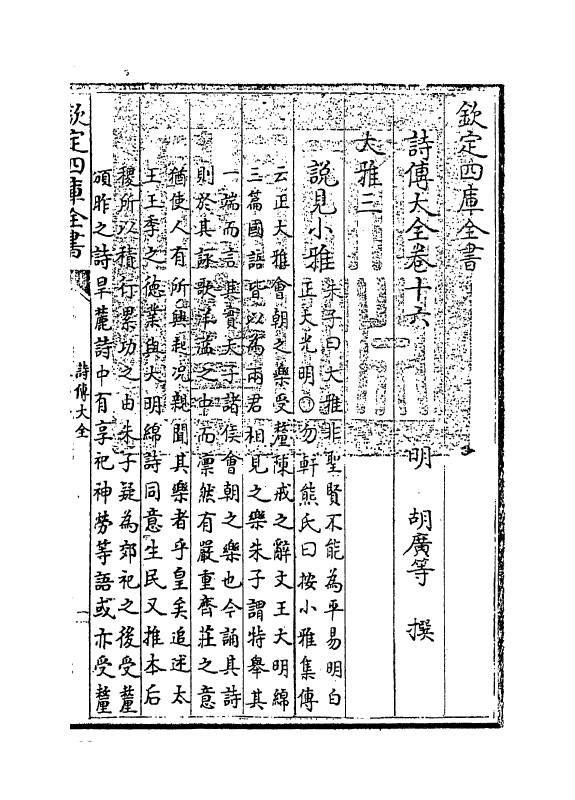 欽定四庫全書
詩傳大全卷十六
明 胡廣等 撰
大雅三
說見小雅
朱子曰大雅非聖賢不能為平易明白
正大光明○勿軒熊氏曰按小雅集傳
云正大雅會朝之樂受釐陳戒之辭文王大明綿
三篇國語皆以為兩君相見之樂朱子謂特舉其
一端而言其實天子諸侯會朝之樂也今誦其詩
則於其詠歌洋溢之中而凛然有嚴重齊莊之意
猶使人有所興起况親聞其樂者乎皇矣追述太
王王季之德業與大明綿詩同意生民又推本后
稷所以積行累功之由朱子疑為郊祀之後受釐
頒胙之詩旱麓詩中有享祀神勞等語或亦受釐
欽定四庫全書
詩傳大全
一